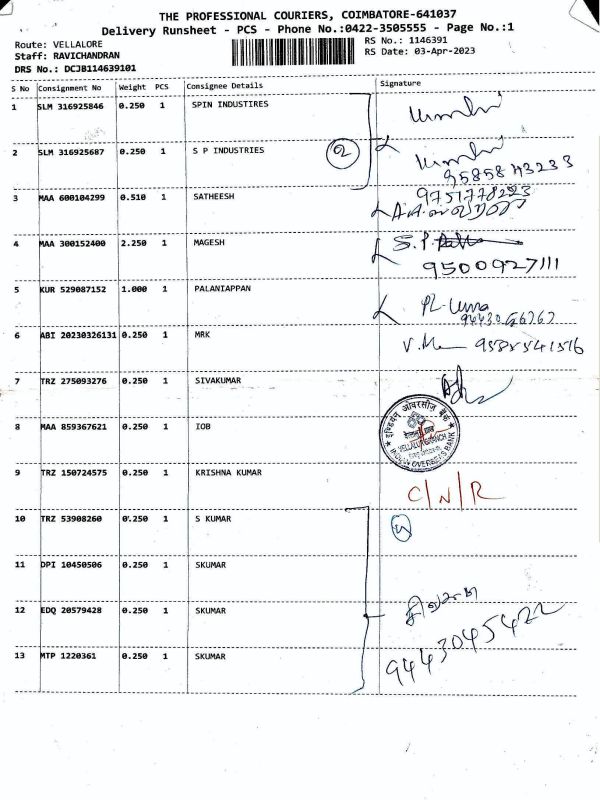 THE PROFESSIONAL COURIERS, COIMBATORE-641037
Delivery Runsheet - PCS - Phone No.:0422-3505555 - Page No.:1
Route: VELLALORE
RS No.: 1146391
Staff: RAVICHANDRAN
RS Date: 03-Apr-2023
DRS No.: DCJB114639101
S No Consignment No Weight PCS Consignee Details Signature
1 SLM 316925846 0.250 1 SPIN INDUSTIRES
2 SLM 316925687 0.250 1 S P INDUSTRIES 2
9585843233
3 MAA 600104299 0.510 1 SATHEESH 9751778223
4 MAA 300152400 2.250 1 MAGESH S.P.
9500927111
5 KUR 529087152 1.000 1 PALANIAPPAN
6 ABI 20230326131 0.250 1 MRK
7 TRZ 275093276 0.250 1 SIVAKUMAR
8 MAA 859367621 0.250 1 IOB
इण्डियन ओवरसीज़ बैंक
VELLALUR BRANCH
INDIAN OVERSEAS BANK
9 TRZ 150724575 0.250 1 KRISHNA KUMAR C/N/R
10 TRZ 53908260 0.250 1 S KUMAR
11 DPI 10450506 0.250 1 SKUMAR
12 EDQ 20579428 0.250 1 SKUMAR
13 MTP 1220361 0.250 1 SKUMAR 9443045422